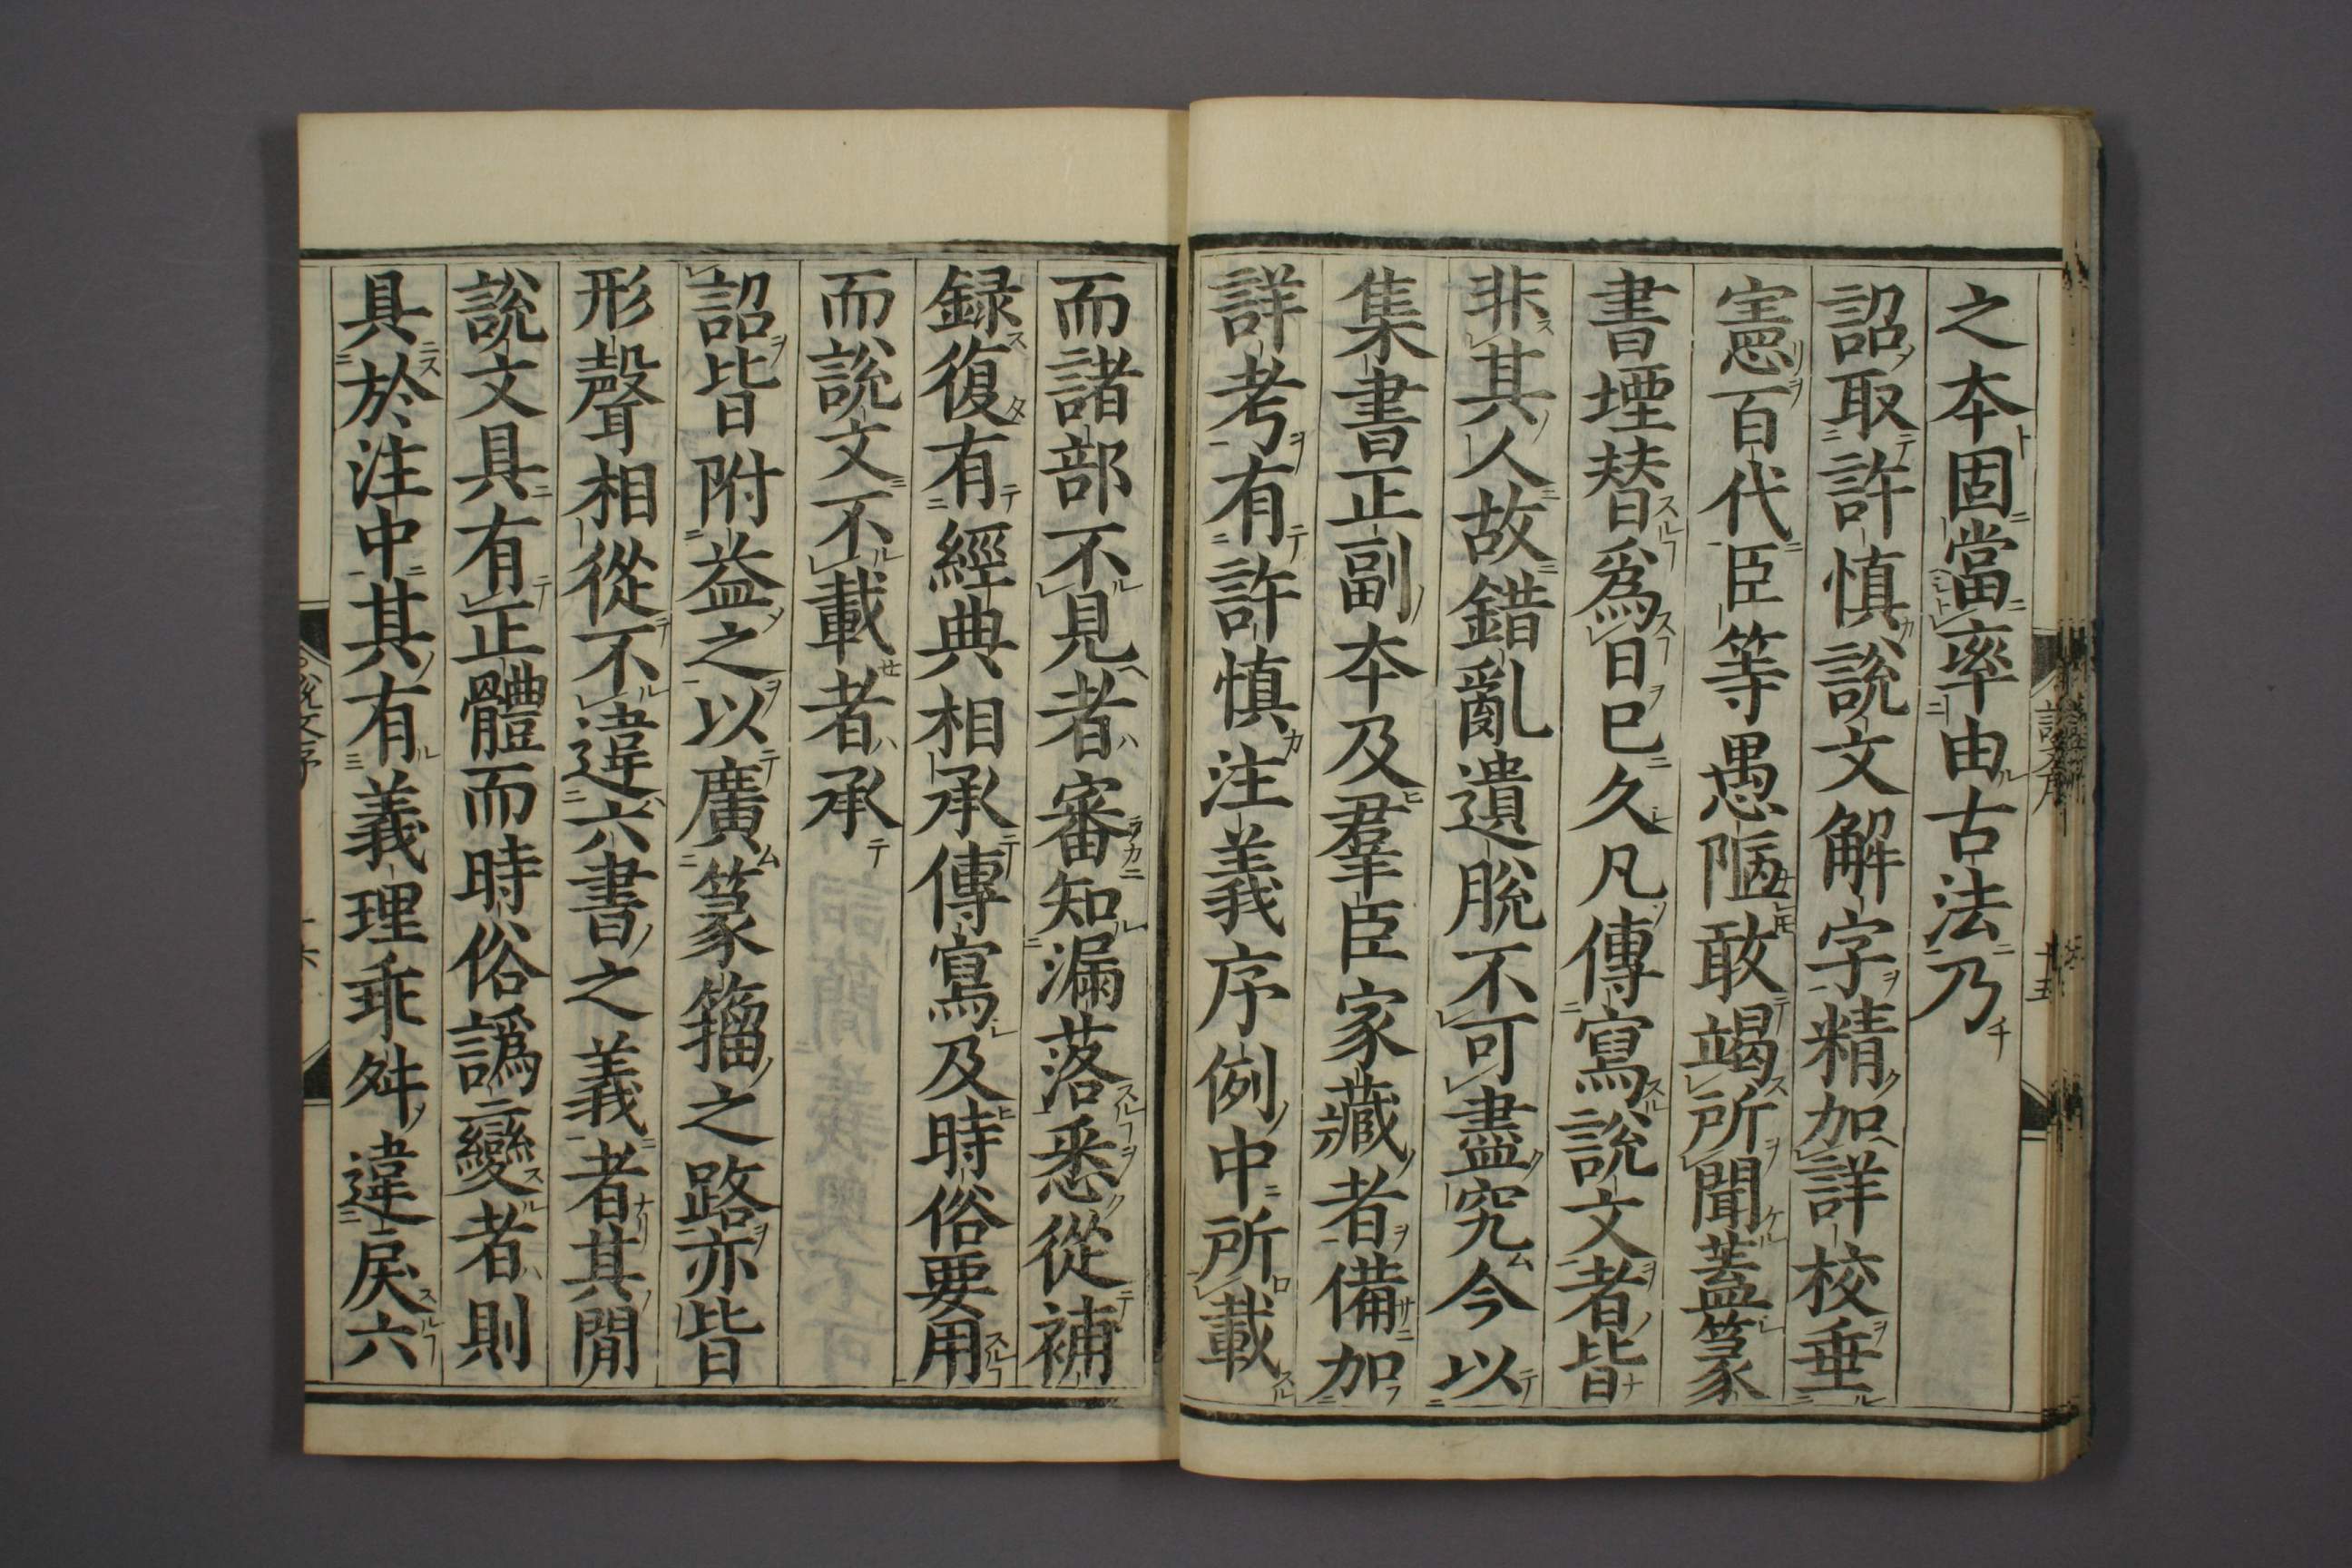 之本固當率由古法乃
詔取許慎說文解字精加詳校垂
憲百代臣等愚陋敢竭所聞蓋篆
書堙替爲日已久凡傳寫說文者皆
非其人故錯亂遺脫不可盡究今以
集書正副本及羣臣家藏者備加
詳考有許慎注義序例中所載
而諸部不見者審知漏落悉從補
録復有經典相承傳寫及時俗要用
而說文不載者承
詔皆附益之以廣篆籀之路亦皆
形聲相從不違六書之義者其閒
說文具有正體而時俗譌變者則
具於注中其有義理乖舛違戾六